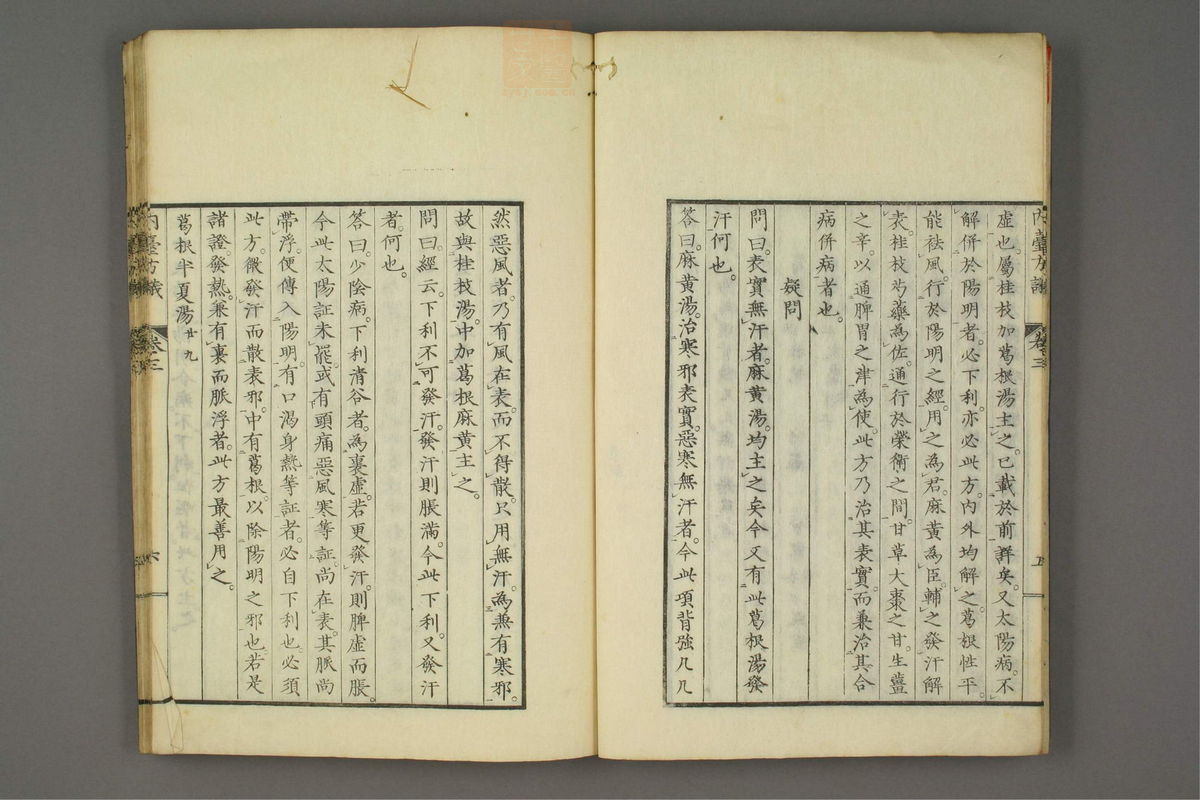 內臺方議
卷三
五
虛也。屬桂枝加葛根湯主之。已載於前詳矣。又太陽病。不
解併於陽明者。必下利。亦必此方。內外均解之。葛根性平。
能祛風。行於陽明之經。用之為君。麻黃為臣。輔之發汗解
表。桂枝芍藥為佐。通行於榮衛之間。甘草大棗之甘。生薑
之辛。以通脾胃之津為使。此方乃治其表實。而兼治其合
病併病者也。
疑問
問曰。表實無汗者。麻黃湯。均主之矣。今又有此葛根湯發
汗何也。
答曰。麻黃湯。治寒邪表實。惡寒無汗者。今此項背強几几
然惡風者。乃有風在表。而不得散。只用無汗。為兼有寒邪。
故與桂枝湯。中加葛根麻黃主之。
問曰。經云。下利不可發汗。發汗則脹滿。今此下利。又發汗
者。何也。
答曰。少陰病。下利清谷者。為裏虛。若更發汗。則脾虛而脹。
今此太陽証未罷。或有頭痛惡風寒等証。尚在表。其脈尚
帶浮。便傳入陽明。有口渴身熱等証者。必自下利也。必須
此方。微發汗而散表邪。中有葛根。以除陽明之邪也。若是
諸證。發熱。兼有裏而脈浮者。此方最善用之。
葛根半夏湯 廿九
內臺方議
卷三
六